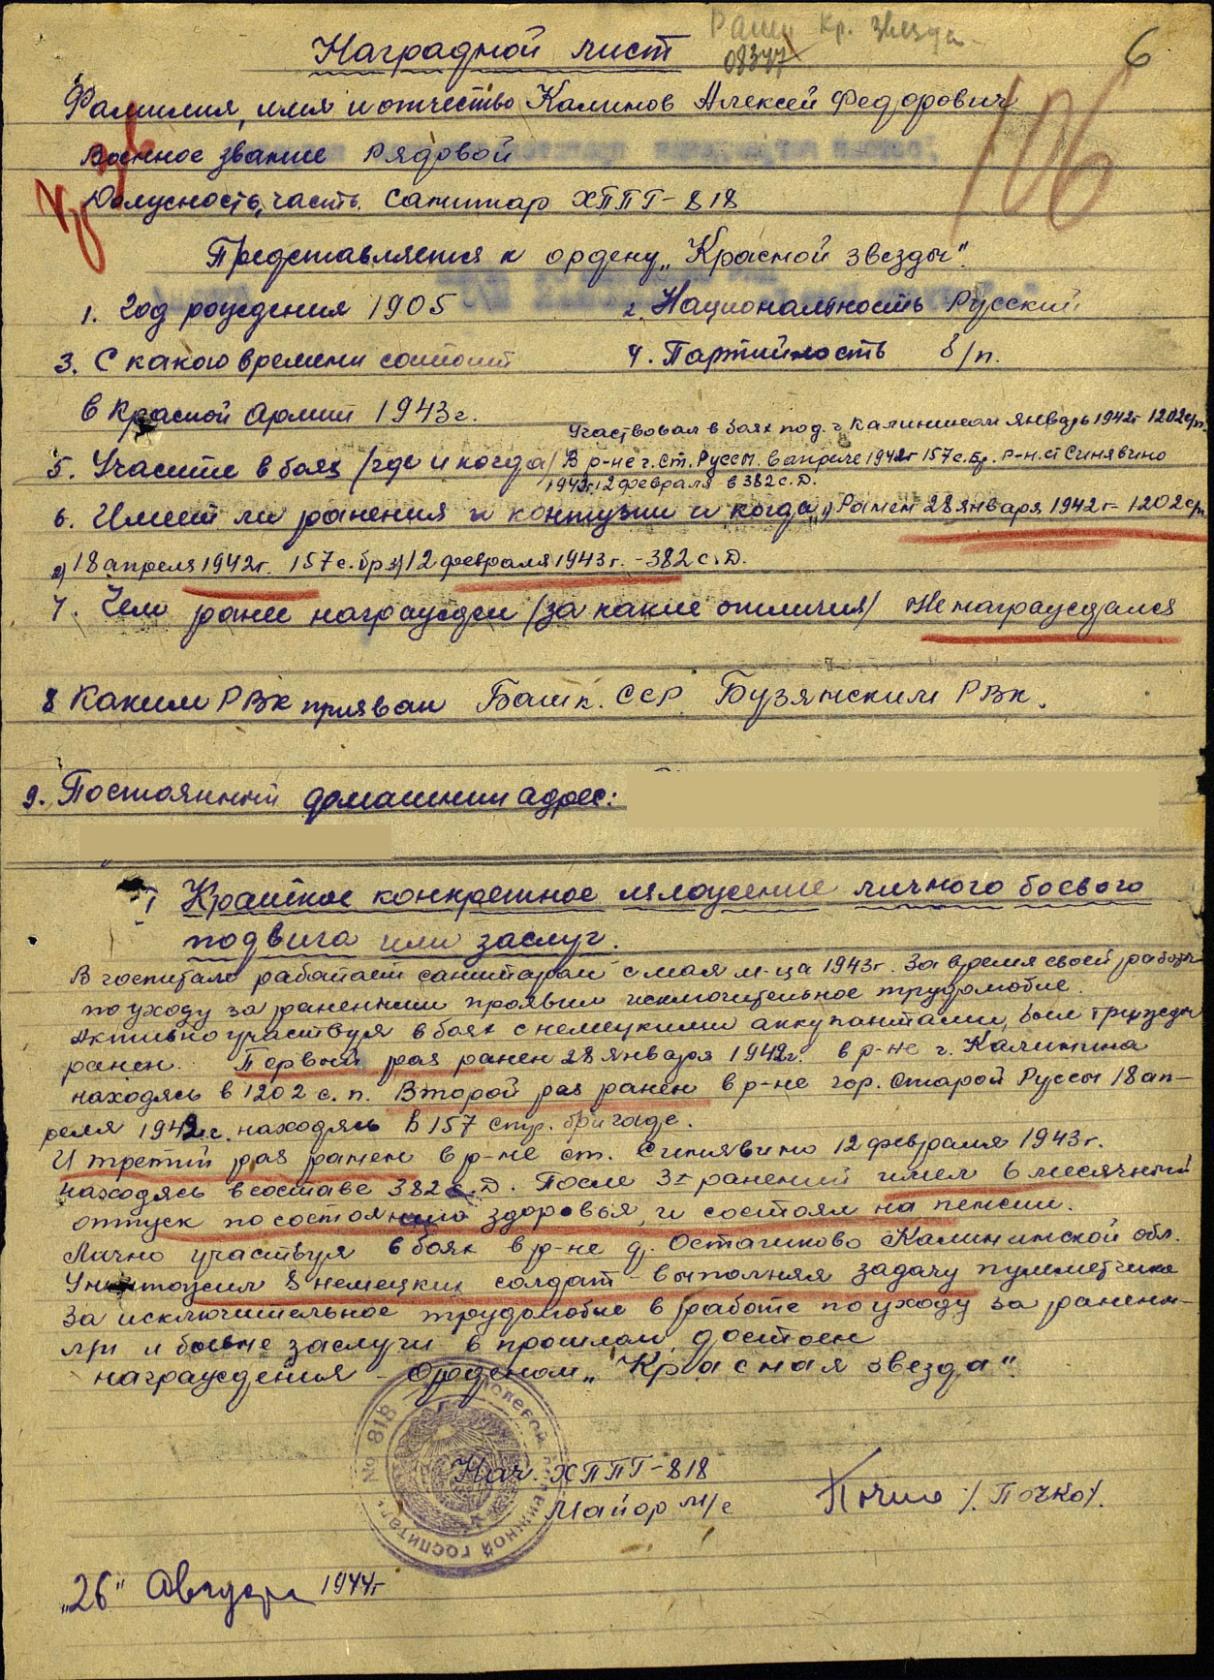 Ранен Кр. Звезда
08377
6
106
Наградной лист
Фамилия, имя и отчество Калинов Алексей Федорович
Военное звание Рядовой
Должность, часть. Санитар ХППГ-818
Представляется к ордену „Красной звезды".
1. Год рождения 1905 2. Национальность Русский
3. С какого времени состоит 4. Партийность б/п.
в Красной Армии 1943г.
Участвовал в боях под г. Калинином январь 1942г 1202с.п.
5. Участие в боях /где и когда/ В р-не г. Ст. Руссы в апреле 1942г 157 с. бр. р-н. ст Синявино
1943г. 12 февраля в 382 с. Д.
6. Имеет ли ранения и контузии и когда 1) Ранен 28 января 1942г - 1202 с.п.
2) 18 апреля 1942г. 157 с. бр 3) 12 февраля 1943г. - 382 с. Д.
7. Чем ранее награжден /за какие отличия/ Не награждался
8 Каким РВК призван Башк. ССР Бузянским РВК.
9. Постоянный домашний адрес:
I Краткое конкретное изложение личного боевого
подвига или заслуг.
В госпитале работает санитаром с мая м-ца 1943г. За время своей работы
по уходу за раненными проявил исключительное трудолюбие.
Активно участвуя в боях с немецкими аккупантами, был трижды
ранен. Первый раз ранен 28 января 1942г. в р-не г. Калинина
находясь в 1202 с. п. Второй раз ранен в р-не гор. Старой Руссы 18 ап-
реля 1942г. находясь в 157 стр. бригаде.
И третий раз ранен в р-не ст. Синявино 12 февраля 1943г.
находясь в составе 382 с. Д. После 3х ранений имел 6 месячный
отпуск по состоянию здоровья, и состоял на пенсии.
Лично участвуя в боях в р-не д. Осташково Калининской обл.
Уничтожил 8 немецких солдат - выполняя задачу пулеметчика
За исключительное трудолюбие в работе по уходу за ранены-
ми и боевые заслуги в прошлом достоен
награждения - орденом „Красная звезда".
№ 818 полевой подвижной госпиталь
Нач. ХППГ-818
Майор м/с /Почко/.
„26" Августа 1944г